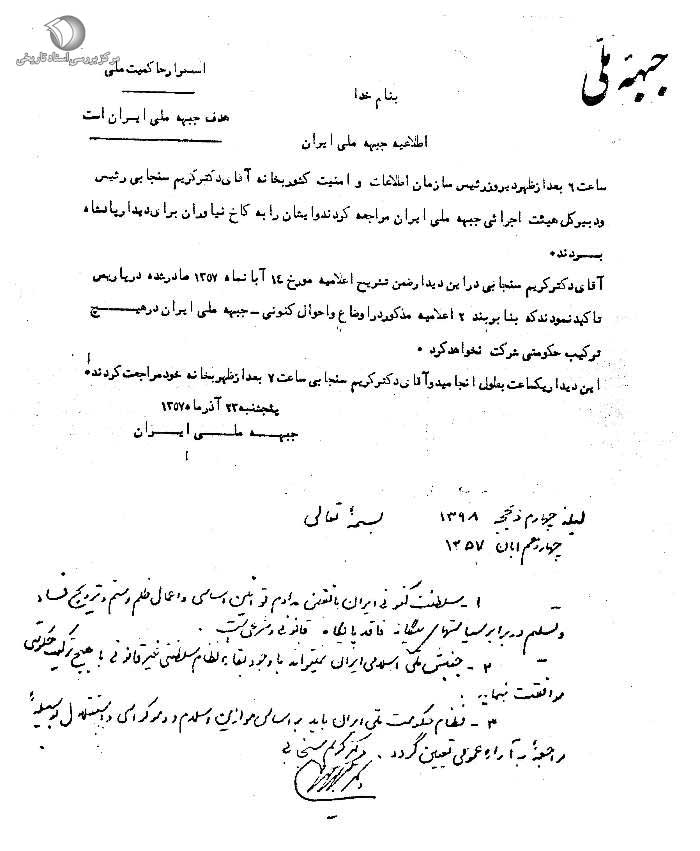 مرکز بررسی اسناد تاریخی
جبههٔ ملّی
استقرار حاکمیت ملی
هدف جبهه ملی ایران است
بنام خدا
اطلاعیه جبهه ملی ایران
ساعت ٦ بعد از ظهر دیروز رئیس سازمان اطلاعات و امنیت کشور بخانه آقای دکتر کریم سنجابی رئیس
و دبیر کل هیئت اجرائی جبهه ملی ایران مراجعه کردند و ایشان را به کاخ نیاوران برای دیدار پادشاه
بــردند.
آقای دکتر کریم سنجابی در این دیدار ضمن تشریح اعلامیه مورخ ١٤ آبانماه ١٣٥٧ صادر شده در پاریس
تاکید نمودند که بنا بر بند ٢ اعلامیه مذکور در اوضاع و احوال کنونی – جبهه ملی ایران در هیــچ
ترکیب حکومتی شرکت نخواهد کرد.
این دیدار یکساعت بطول انجامید و آقای دکتر کریم سنجابی ساعت ٧ بعد از ظهر بخانه خود مراجعت کردند.
پنجشنبه ٢٣ آذر ماه ١٣٥٧
جبهــه ملــی ایــران
بسمه تعالی
لیله چهارم ذیحجه ١٣٩٨
چهاردهم ابان ١٣٥٧
١ – سلطنت کنونی ایران با نقض مداوم قوانین اساسی و اعمال ظلم و ستم و ترویج فساد
و تسلیم در برابر سیاستهای بیگانه فاقد پایگاه قانونی و شرعی است.
٢ – جنبش ملی اسلامی ایران نمیتواند با وجود بقاء نظام سلطنتی غیر قانونی با هیچ ترکیب حکومتی
موافقت نماید.
٣ – نظام حکومت ملی ایران باید بر اساس موازین اسلام و دموکراسی و استقلال بوسیلهٔ
مراجعهٔ به آراء عمومی تعیین گردد.
دکتر کریم سنجابی